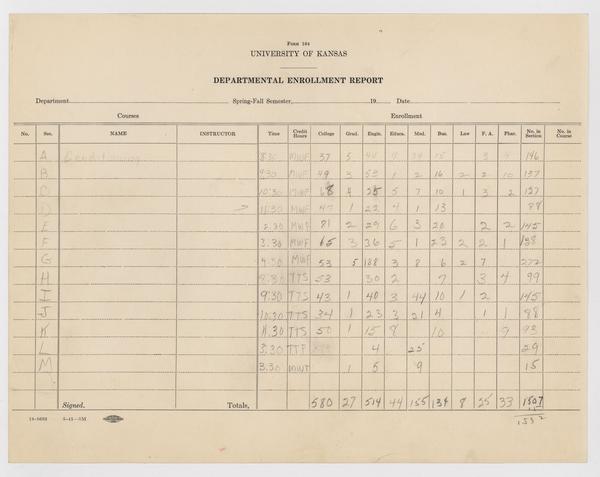 Form 104
UNIVERSITY OF KANSAS
DEPARTMENTAL ENROLLMENT REPORT
Department Spring-Fall Semester, 19 Date
Courses Enrollment
No. Sec. NAME INSTRUCTOR Time Credit Hours College Grad. Engin. Educa. Med. Bus. Law F. A. Phar. No. in Section No. in Course
A Conditioning 8:30 MWF 37 5 146
B 9:30 MWF 49 3 53 1 2 16 2 2 10 137
C 10:30 MWF 68 4 25 5 7 10 1 3 2 127
D 11:30 MWF 47 1 22 4 1 13 88
E 2:30 MWF 81 2 29 6 3 20 2 2 145
F 3:30 MWF 65 3 36 5 1 23 2 2 1 138
G 4:30 MWF 53 5 188 3 8 6 2 7 272
H 8:30 TTS 53 30 2 7 3 4 99
I 9:30 TTS 43 1 40 3 44 10 1 2 145
J 10:30 TTS 34 1 23 3 21 4 1 1 88
K 11:30 TTS 50 1 15 8 10 9 93
L 3:30 TTF 4 25 29
M 3:30 MWF 1 5 9 15
Signed. Totals, 580 27 514 44 155 134 8 25 33 1507
1532